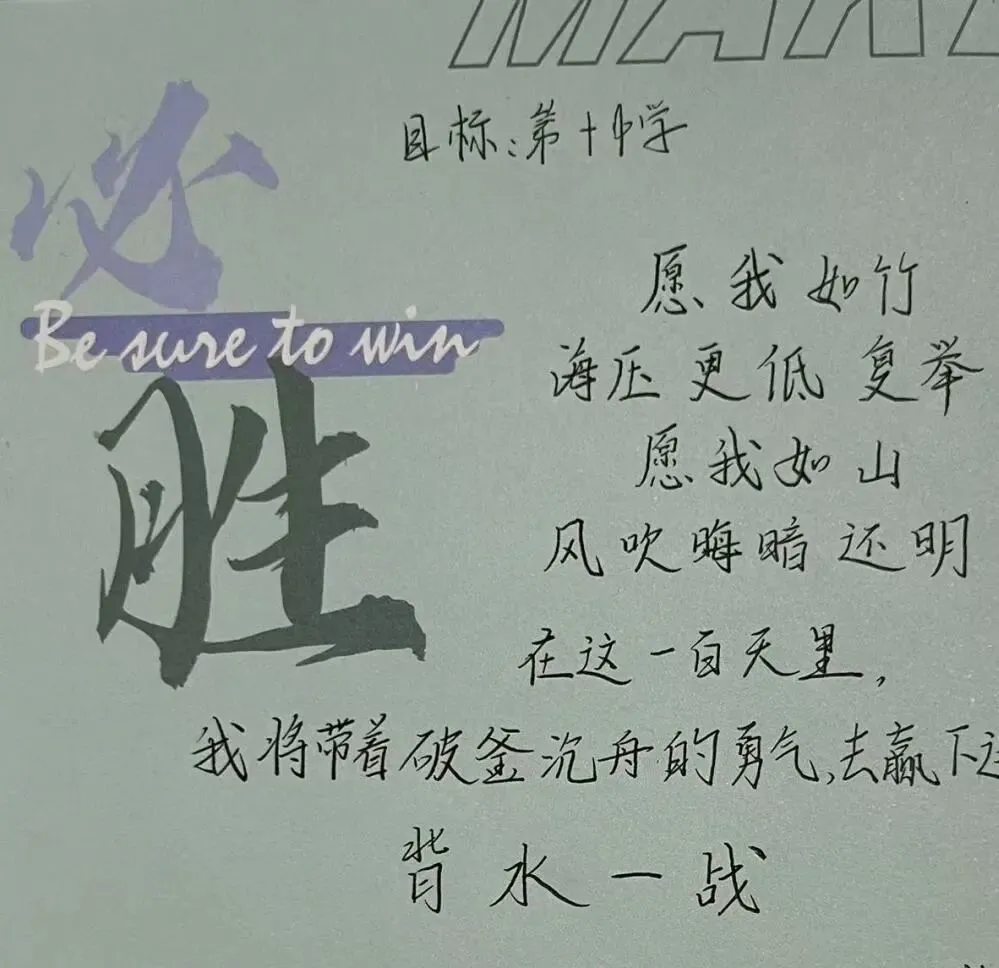 MAR
目标:第十中学
必
Be sure to win
胜
愿我如竹
海压更低复举
愿我如山
风吹晦暗还明
在这一百天里,
我将带着破釜沉舟的勇气,去赢下这
背水一战